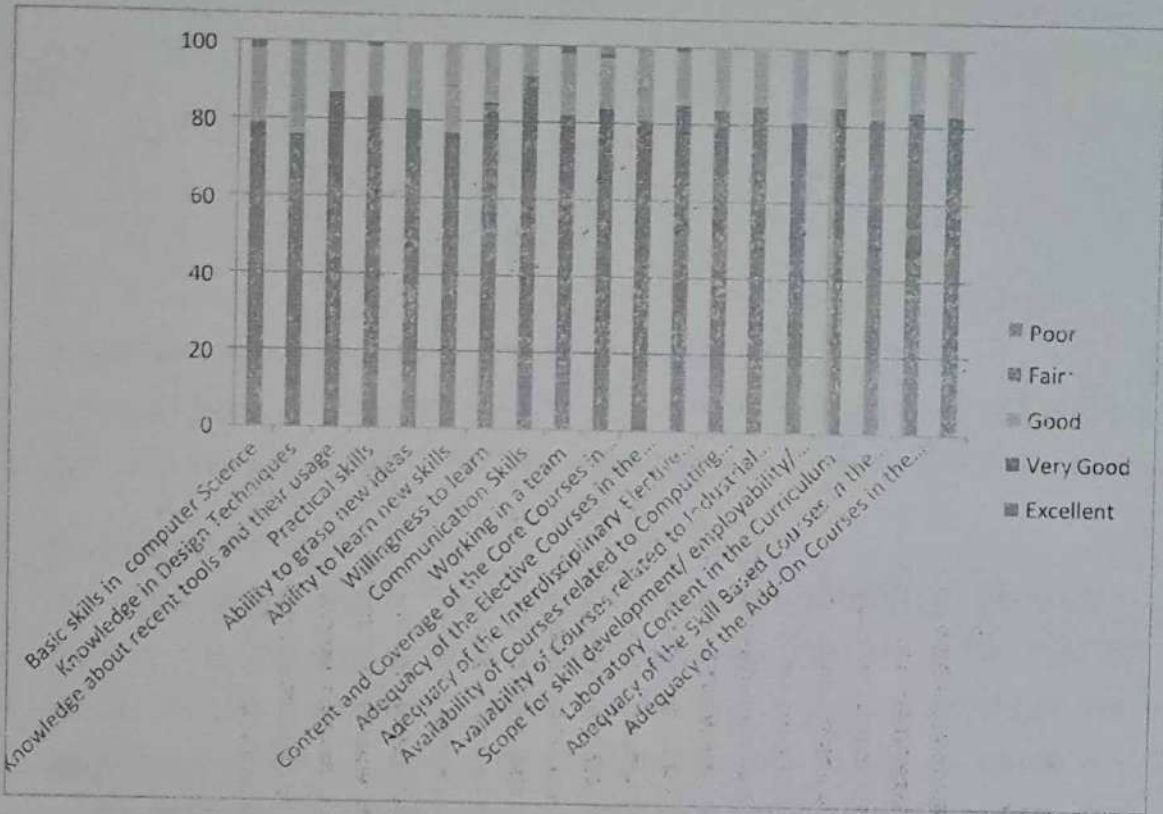 100
80
60
40
20
0
Basic skills in computer Science
Knowledge in Design Techniques
Knowledge about recent tools and their usage
Practical skills
Ability to grasp new ideas
Ability to learn new skills
Willingness to learn
Communication Skills
Working in a team
Content and Coverage of the Core Courses in...
Adequacy of the Elective Courses in the...
Adequacy of the Interdisciplinary Elective...
Availability of Courses related to Computing...
Availability of Courses related to Industrial...
Scope for skill development/ employability/...
Laboratory Content in the Curriculum
Adequacy of the Skill Based Courses in the...
Adequacy of the Add-On Courses in the...
Poor
Fair
Good
Very Good
Excellent